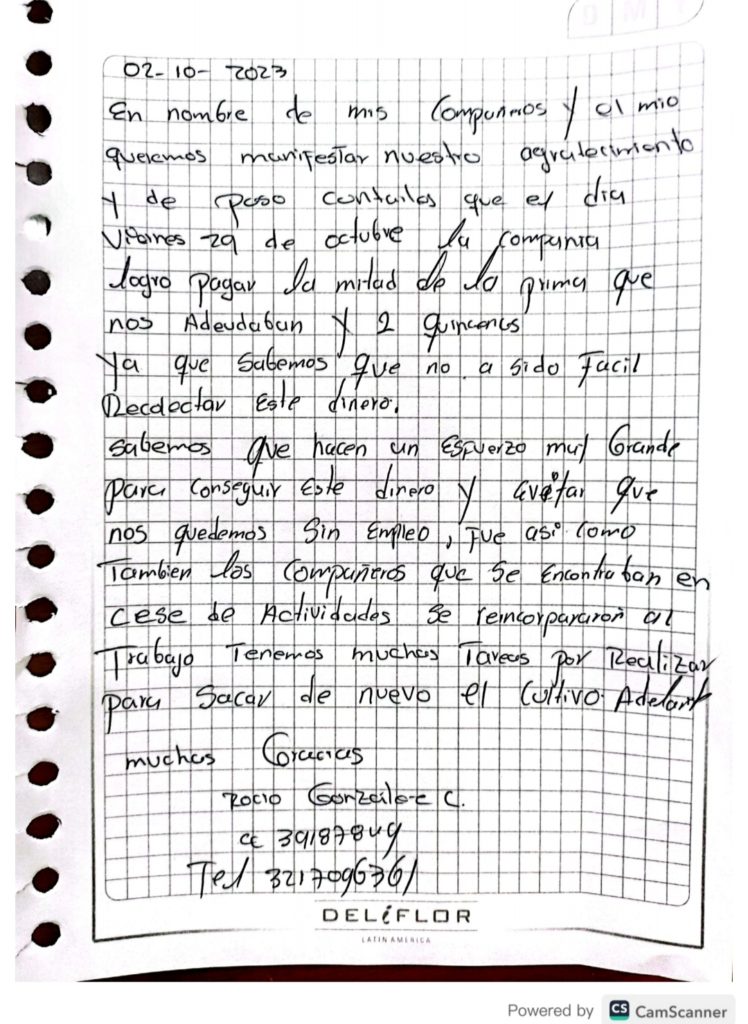 02-10-2023
En nombre de mis Compañeros y el mio
queremos manifestar nuestro agradecimiento
y de paso contarles que el dia
Viernes 29 de octubre la compania
logro pagar la mitad de la prima que
nos Adeudaban y 2 quincenas
Ya que sabemos que no a sido Facil
Recolectar Este dinero.
Sabemos que hacen un Esfuerzo muy Grande
para conseguir Este dinero y evitar que
nos quedemos Sin Empleo, Fue asi como
Tambien los Compañeros que Se Encontraban en
cese de Actividades se reincorpararon al
Trabajo Tenemos muchas Tareas por Realizar
para Sacar de nuevo el Cultivo. Adelant
muchas Gracias
Rocio Gonzalez C.
cc 39187849
Tel 3217096761
DELiFLOR
LATIN AMERICA
Powered by CS CamScanner